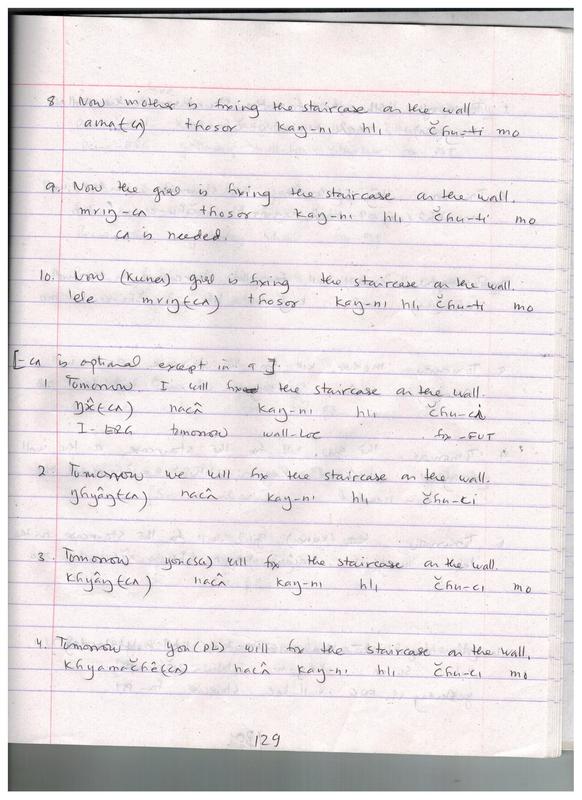 8 Now mother is fixing the staircase on the wall.
ama(-cʌ) thosor kaŋ-ni hli čhu-ti mo
9. Now the girl is fixing the staircase on the wall.
mriŋ-cʌ thosor kaŋ-ni hli čhu-ti mo
cʌ is needed.
10. Now (Kuner) girl is fixing the staircase on the wall.
lese mriŋ(-cʌ) thosor kaŋ-ni hli čhu-ti mo
[-cʌ is optional except in 9].
1. Tomorrow I will fix the staircase on the wall.
ŋʌ̂(-cʌ) nacʌ̂ kaŋ-ni hli čhu-ci
I-ERG tomorrow wall-LOC fix-FUT
2. Tomorrow we will fix the staircase on the wall.
ŋhyâŋ(-cʌ) nacʌ̂ kaŋ-ni hli čhu-ci
3. Tomorrow you(SG) will fix the staircase on the wall.
khyâŋ(-cʌ) nacʌ̂ kaŋ-ni hli čhu-ci mo
4. Tomorrow you(PL) will fix the staircase on the wall.
khyamačhê(-cʌ) nacʌ̂ kaŋ-ni hli čhu-ci mo
129